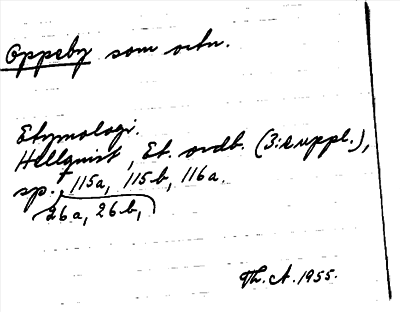 Oppeby som ortn.
Etymologi.
Hellquist, Et. ordb. (3: suppl.),
sp. 115a, 115b, 116a.
26a, 26b,
Th. A. 1955.